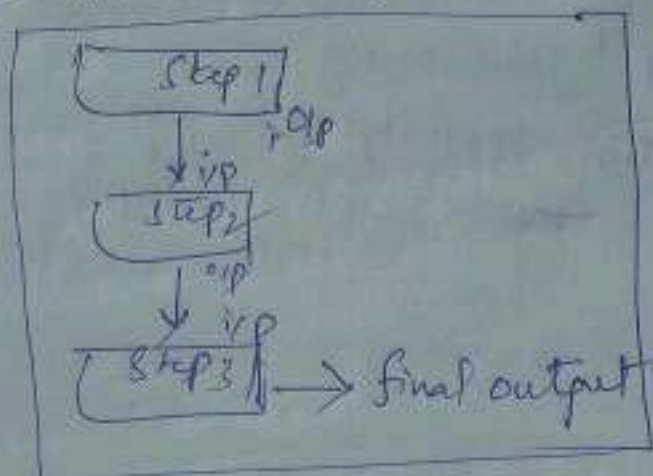 Step 1
O/p
i/p
Step2
o/p
i/p
Step3
final output